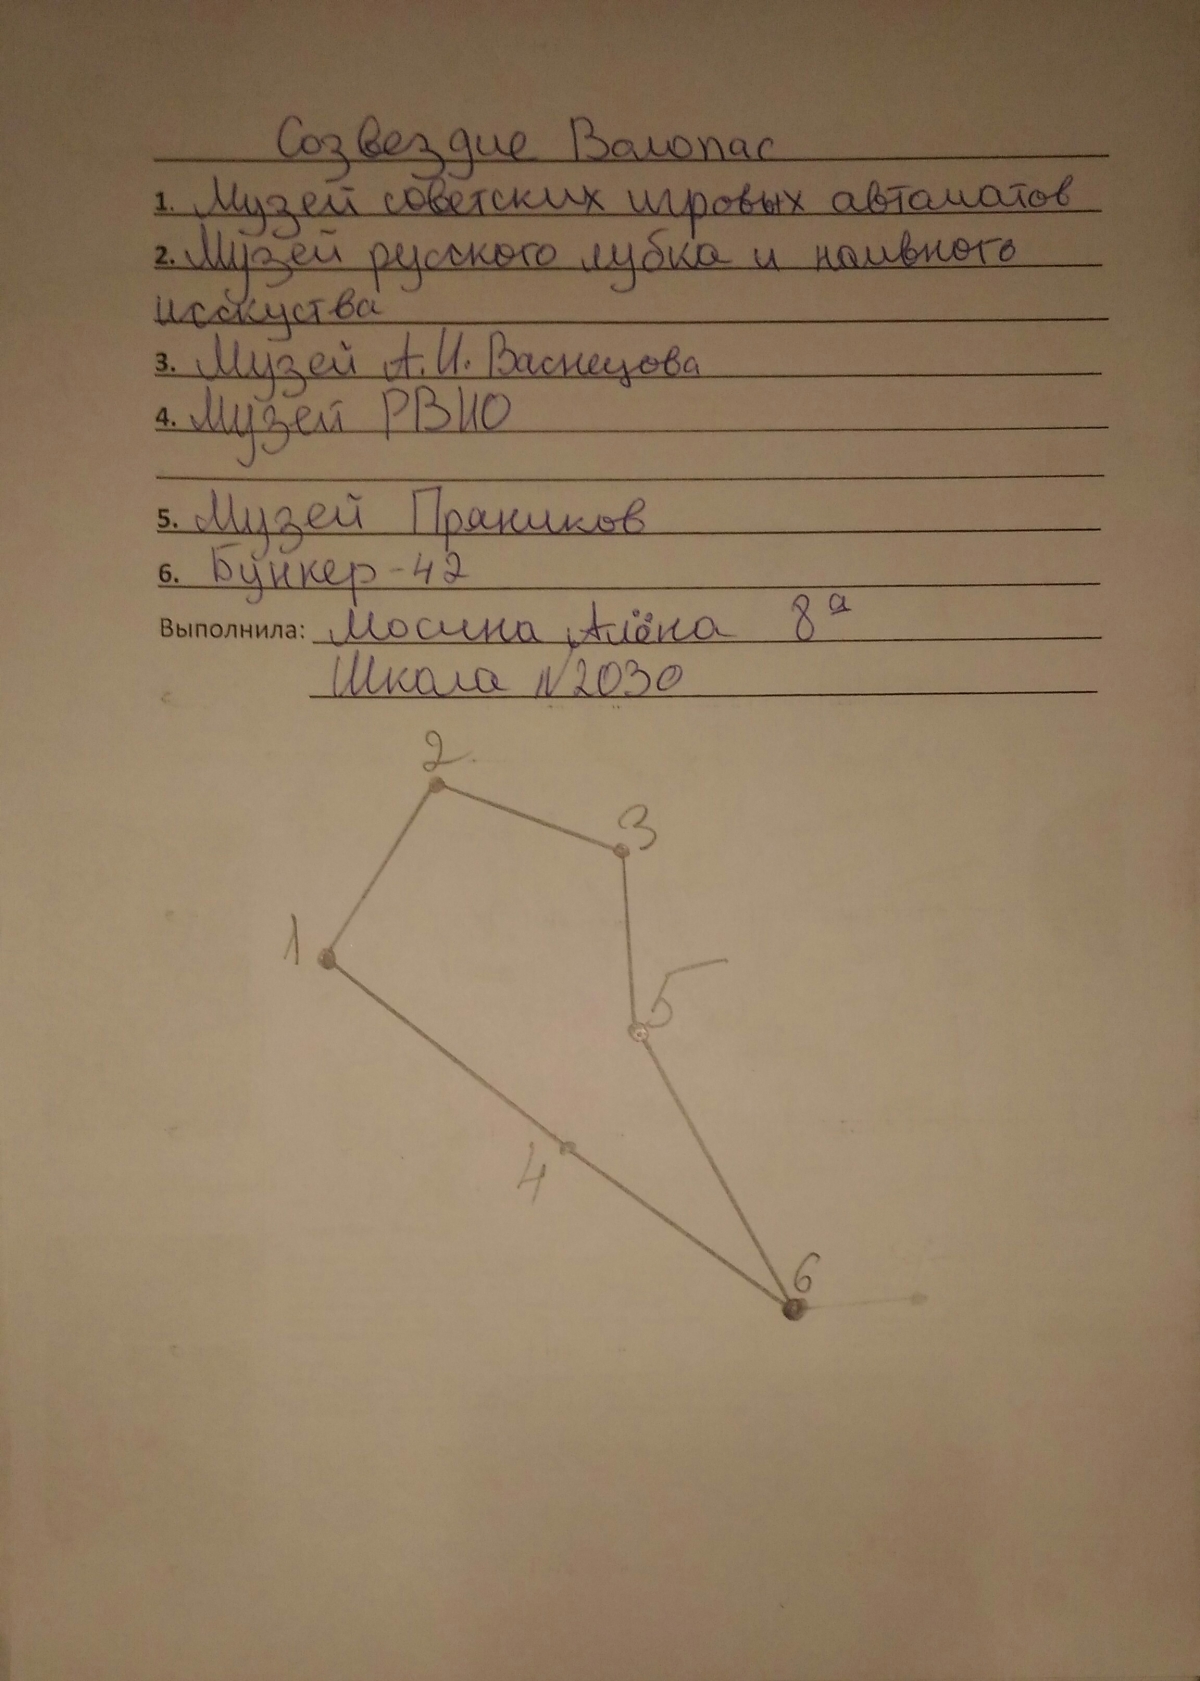 Созвездие Валопас
1. Музей советских игровых автоматов
2. Музей русского лубка и наивного
исскуства
3. Музей А.И. Васнецова
4. Музей РВИО
5. Музей Пряников
6. Бункер-42
Выполнила: Мосина Алёна 8а
Школа №2030
2
3
1
5
4
6